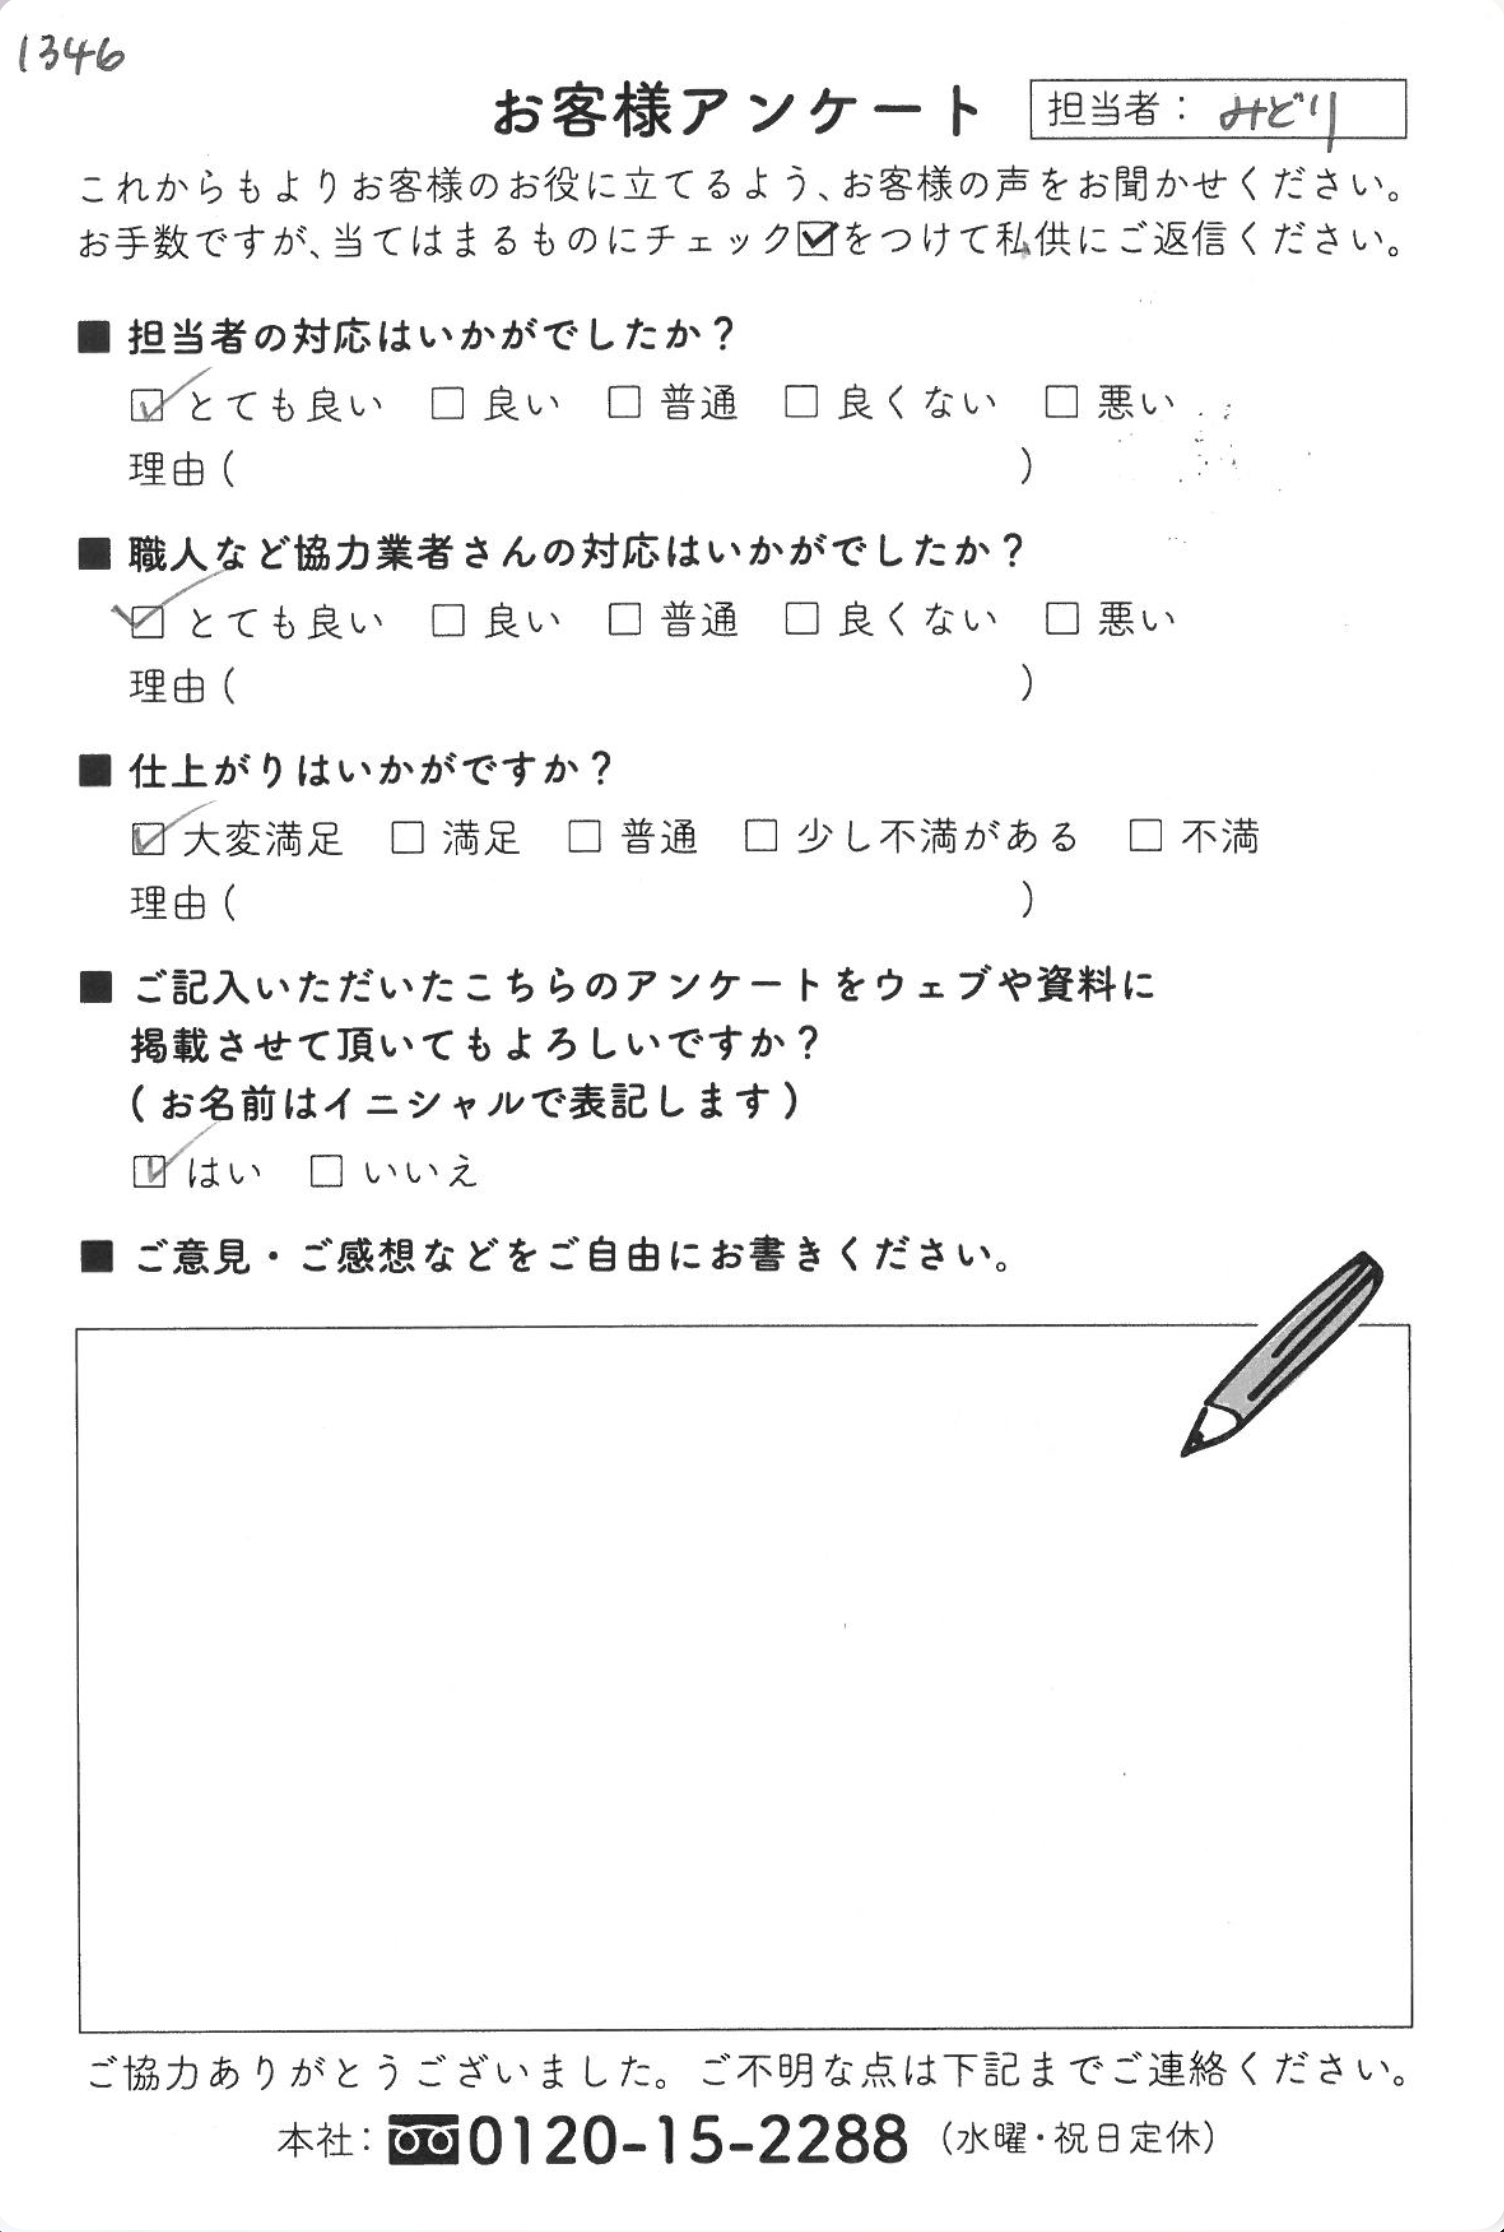 1346
お客様アンケート
担当者： みどり
これからもよりお客様のお役に立てるよう、お客様の声をお聞かせください。
お手数ですが、当てはまるものにチェック☑をつけて私供にご返信ください。
■ 担当者の対応はいかがでしたか？
☑ とても良い □ 良い □ 普通 □ 良くない □ 悪い
理由（ ）
■ 職人など協力業者さんの対応はいかがでしたか？
☑ とても良い □ 良い □ 普通 □ 良くない □ 悪い
理由（ ）
■ 仕上がりはいかがですか？
☑ 大変満足 □ 満足 □ 普通 □ 少し不満がある □ 不満
理由（ ）
■ ご記入いただいたこちらのアンケートをウェブや資料に
掲載させて頂いてもよろしいですか？
（お名前はイニシャルで表記します）
☑ はい □ いいえ
■ ご意見・ご感想などをご自由にお書きください。
ご協力ありがとうございました。ご不明な点は下記までご連絡ください。
本社：0120-15-2288（水曜・祝日定休）